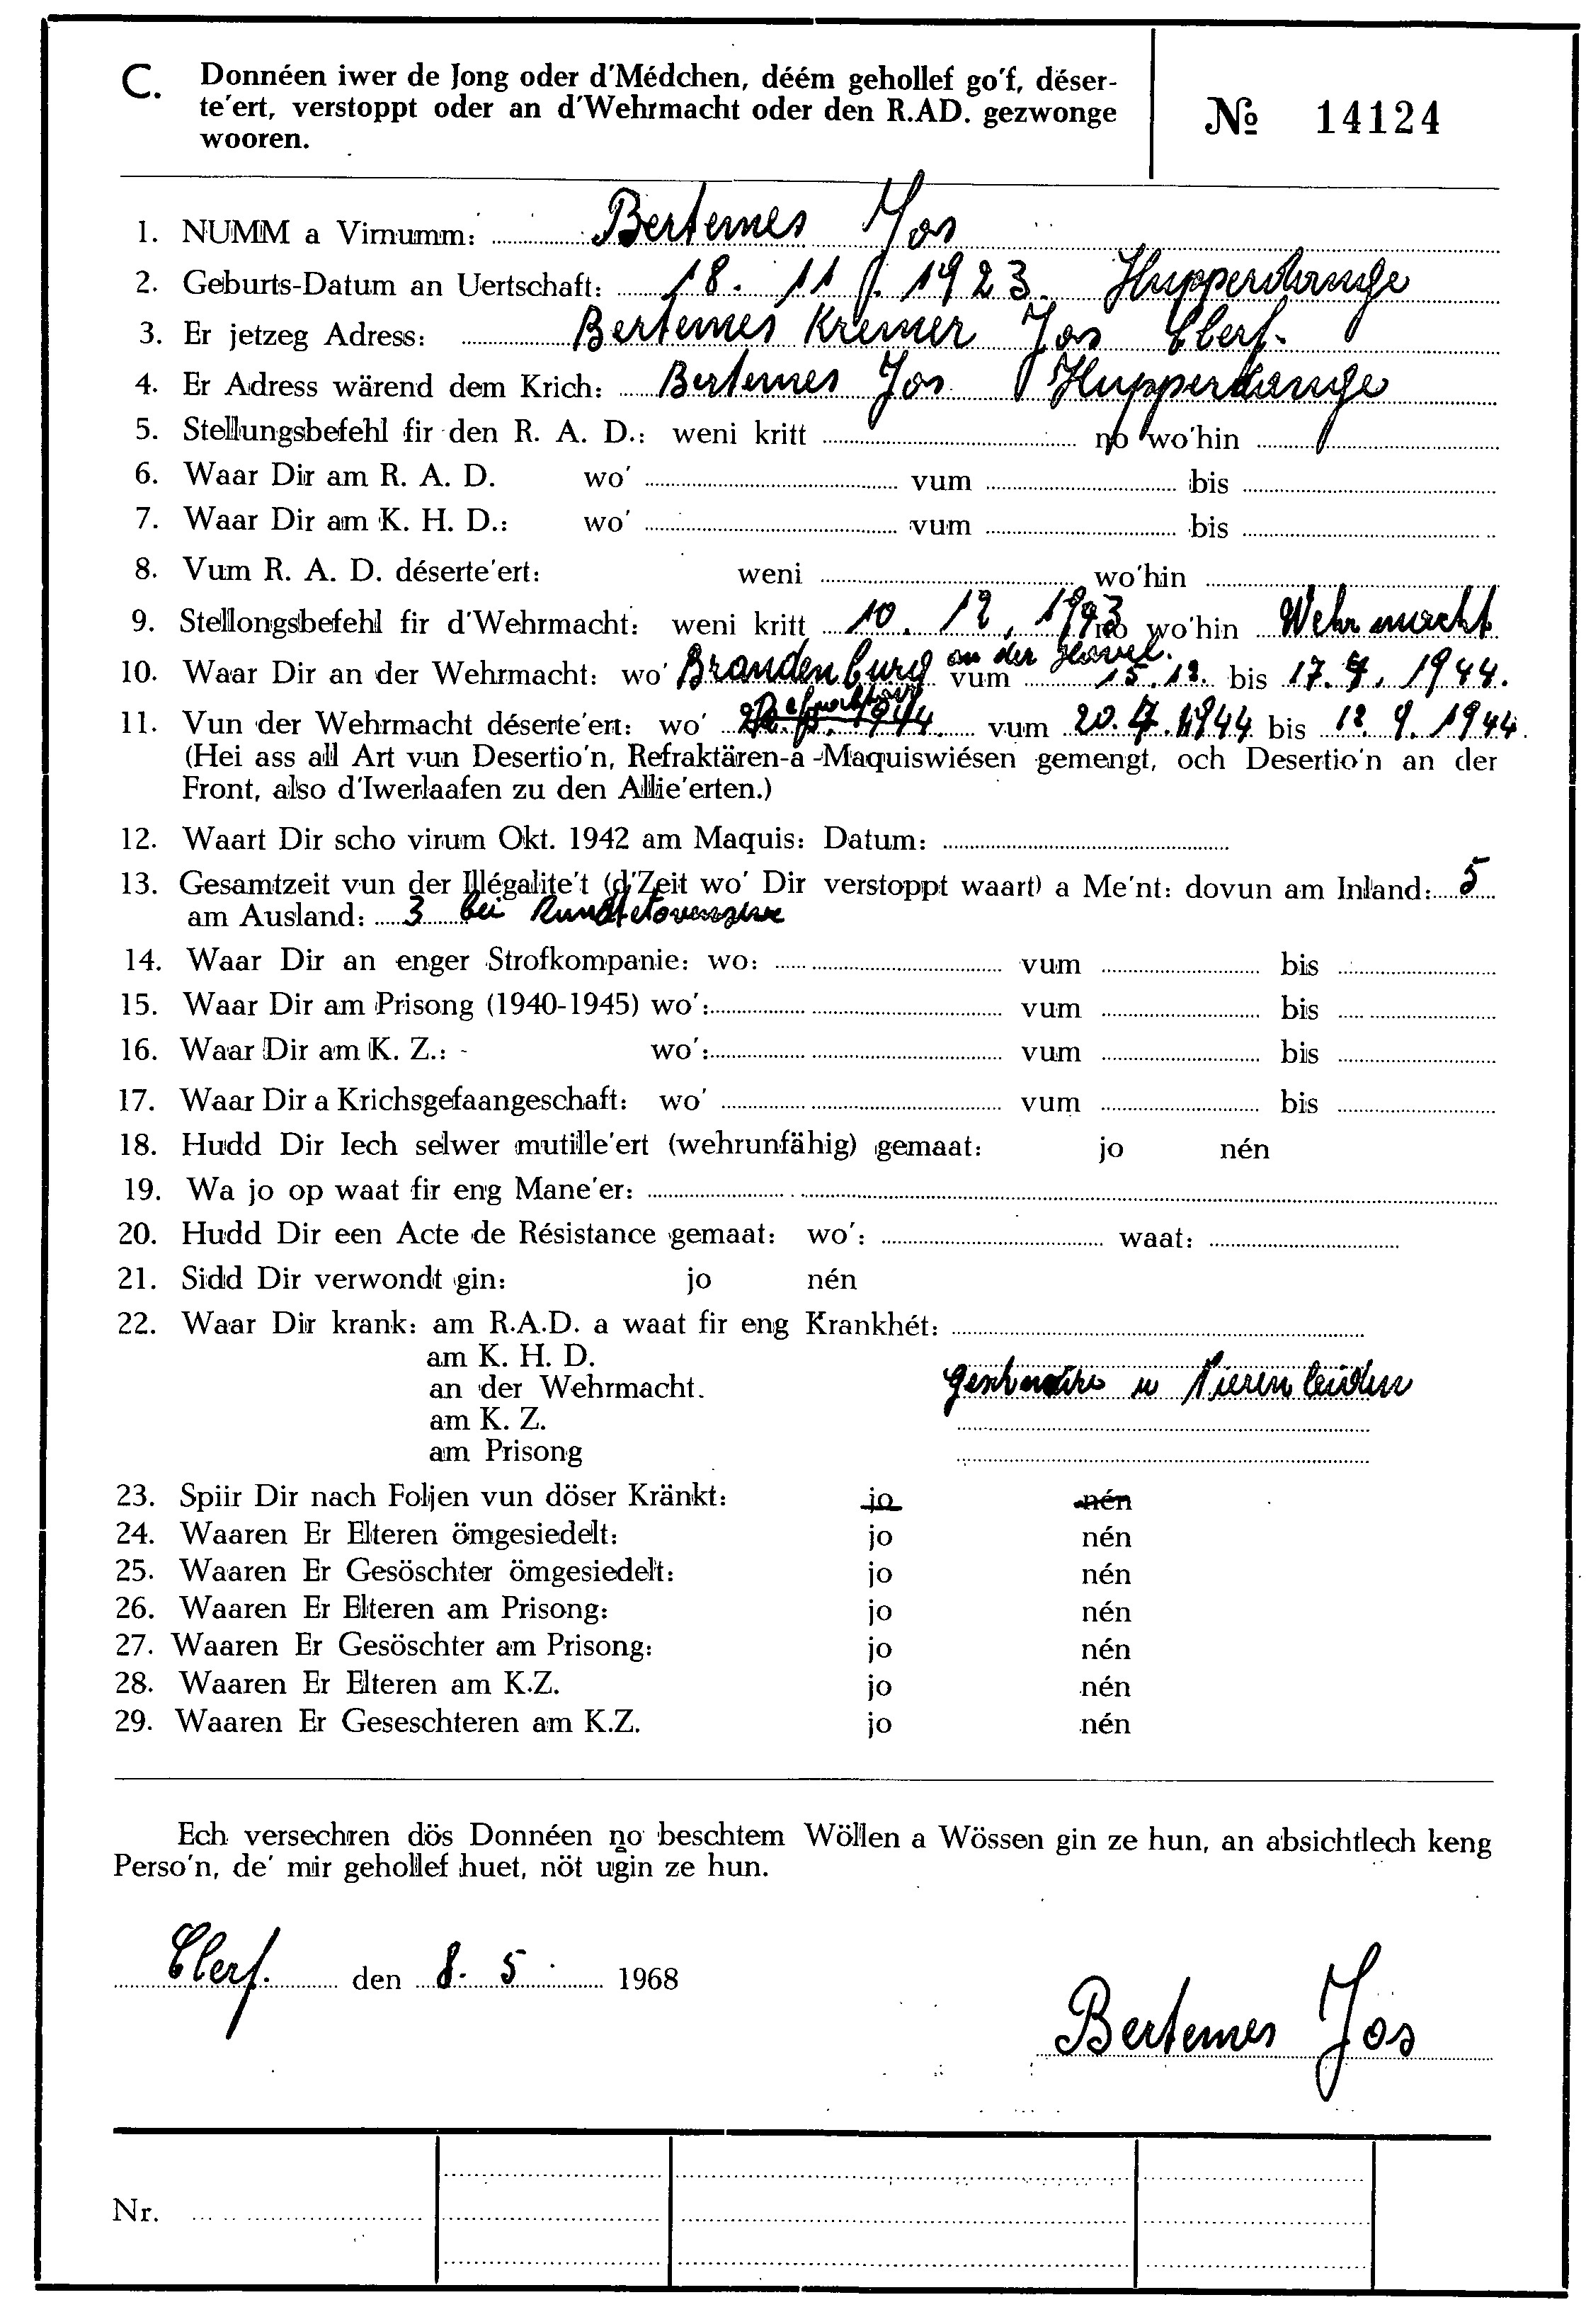 C. Donnéen iwer de Jong oder d'Médchen, déém gehollef go'f, déser-
te'ert, verstoppt oder an d'Wehrmacht oder den R.AD. gezwonge
wooren.
№ 14124
1. NUMM a Virnumm: Bertemes Jos
2. Geburts-Datum an Uertschaft: 18. 11. 1923. Hupperdange
3. Er jetzeg Adress: Bertemes Kremer Jos Clerf.
4. Er Adress wärend dem Krich: Bertemes Jos Hupperdange
5. Stellungsbefehl fir den R. A. D.: weni kritt no wo'hin
6. Waar Dir am R. A. D. wo' vum bis
7. Waar Dir am K. H. D.: wo' vum bis
8. Vum R. A. D. déserte'ert: weni wo'hin
9. Stellongsbefehl fir d'Wehrmacht: weni kritt 10. 12. 1943 no wo'hin Wehrmacht
10. Waar Dir an der Wehrmacht: wo' Brandenburg an der Havel. vum 15.12. bis 17.7.1944.
11. Vun der Wehrmacht déserte'ert: wo' 1944. vum 20.7.1944 bis 12.9.1944.
(Hei ass all Art vun Desertio'n, Refraktären-a -Maquiswiésen gemengt, och Desertio'n an der
Front, also d'Iwerlaafen zu den Allie'erten.)
12. Waart Dir scho virum Okt. 1942 am Maquis: Datum:
13. Gesamtzeit vun der Illégalite't (d'Zeit wo' Dir verstoppt waart) a Me'nt: dovun am Inland: 5
am Ausland: 3 bei
14. Waar Dir an enger Strofkompanie: wo: vum bis
15. Waar Dir am Prisong (1940-1945) wo': vum bis
16. Waar Dir am K. Z.: - wo': vum bis
17. Waar Dir a Krichsgefaangeschaft: wo' vum bis
18. Hudd Dir Iech selwer mutille'ert (wehrunfähig) gemaat: jo nén
19. Wa jo op waat fir eng Mane'er:
20. Hudd Dir een Acte de Résistance gemaat: wo': waat:
21. Sidd Dir verwondt gin: jo nén
22. Waar Dir krank: am R.A.D. a waat fir eng Krankhét:
am K. H. D.
an der Wehrmacht. u Nierenleiden
am K. Z.
am Prisong
23. Spiir Dir nach Foljen vun döser Kränkt: jo nén
24. Waaren Er Elteren ömgesiedelt: jo nén
25. Waaren Er Gesöschter ömgesiedelt: jo nén
26. Waaren Er Elteren am Prisong: jo nén
27. Waaren Er Gesöschter am Prisong: jo nén
28. Waaren Er Elteren am K.Z. jo nén
29. Waaren Er Geseschteren am K.Z. jo nén
Ech versechren dös Donnéen no beschtem Wöllen a Wössen gin ze hun, an absichtlech keng
Perso'n, de' mir gehollef huet, nöt ugin ze hun.
Clerf. den 8. 5. 1968
Bertemes Jos
Nr.